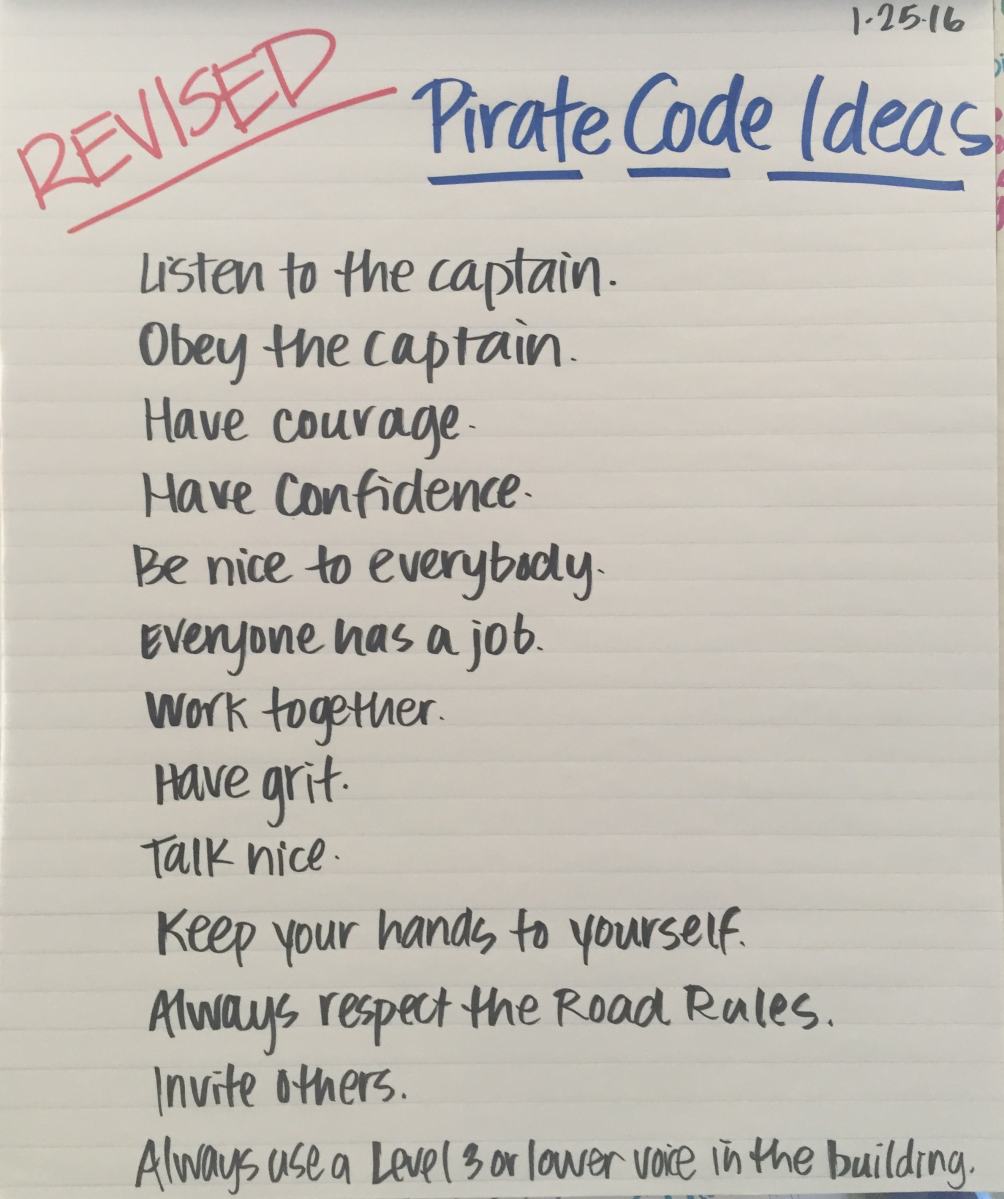 1-25-16
REVISED
Pirate Code Ideas
Listen to the captain.
Obey the captain.
Have courage.
Have Confidence.
Be nice to everybody.
Everyone has a job.
Work together.
Have grit.
Talk nice.
Keep your hands to yourself.
Always respect the Road Rules.
Invite others.
Always use a Level 3 or lower voice in the building.